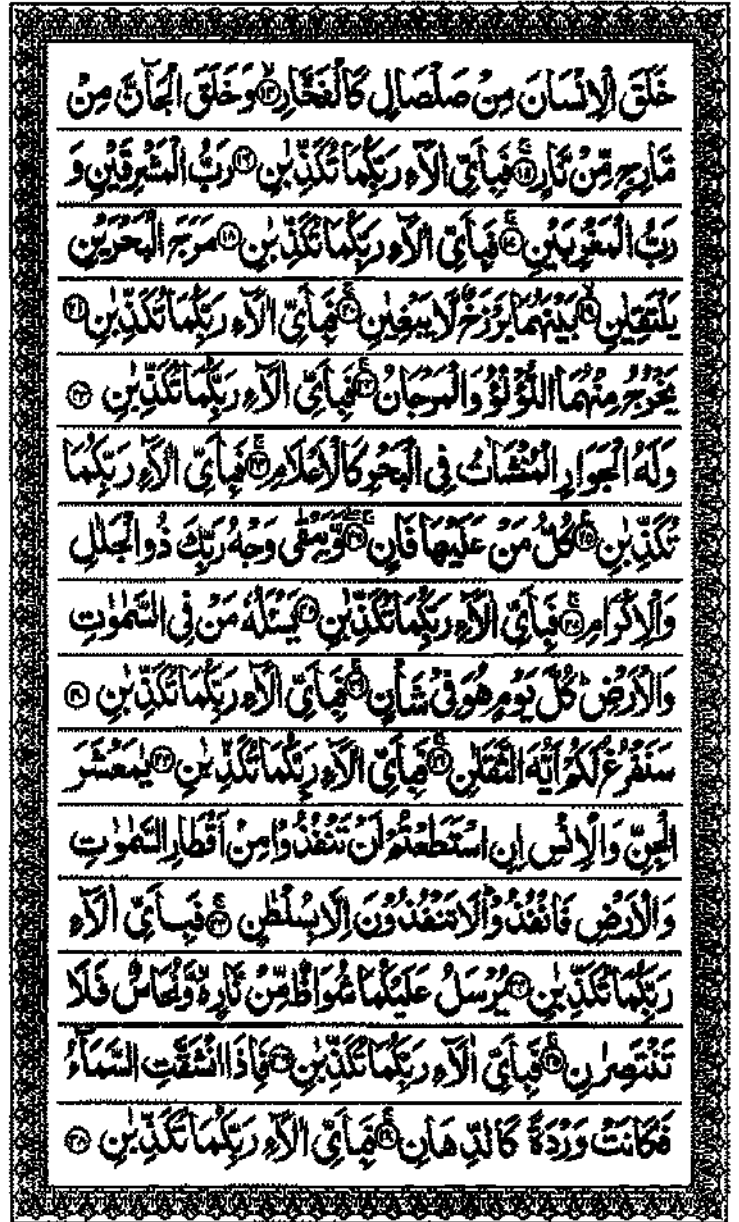 خَلَقَ الْاِنْسَانَ مِنْ صَلْصَالٍ كَالْفَخَّارِ ۙ﴿۱۴﴾ وَخَلَقَ الْجَآنَّ مِنْ
مَّارِجٍ مِّنْ نَّارٍ ۚ﴿۱۵﴾ فَبِاَیِّ اٰلَآءِ رَبِّكُمَا تُكَذِّبٰنِ ﴿۱۶﴾ رَبُّ الْمَشْرِقَیْنِ وَ
رَبُّ الْمَغْرِبَیْنِ ۚ﴿۱۷﴾ فَبِاَیِّ اٰلَآءِ رَبِّكُمَا تُكَذِّبٰنِ ﴿۱۸﴾ مَرَجَ الْبَحْرَیْنِ
یَلْتَقِیٰنِ ۙ﴿۱۹﴾ بَیْنَهُمَا بَرْزَخٌ لَّا یَبْغِیٰنِ ۚ﴿۲۰﴾ فَبِاَیِّ اٰلَآءِ رَبِّكُمَا تُكَذِّبٰنِ ﴿۲۱﴾
یَخْرُجُ مِنْهُمَا اللُّؤْلُؤُ وَالْمَرْجَانُ ۚ﴿۲۲﴾ فَبِاَیِّ اٰلَآءِ رَبِّكُمَا تُكَذِّبٰنِ ﴿۲۳﴾
وَلَهُ الْجَوَارِ الْمُنْشَاٰتُ فِی الْبَحْرِ كَالْاَعْلَامِ ۚ﴿۲۴﴾ فَبِاَیِّ اٰلَآءِ رَبِّكُمَا
تُكَذِّبٰنِ ﴿۲۵﴾ كُلُّ مَنْ عَلَیْهَا فَانٍ ۚۖ﴿۲۶﴾ وَّیَبْقٰی وَجْهُ رَبِّكَ ذُو الْجَلٰلِ
وَالْاِكْرَامِ ۚ﴿۲۷﴾ فَبِاَیِّ اٰلَآءِ رَبِّكُمَا تُكَذِّبٰنِ ﴿۲۸﴾ یَسْـَٔلُهٗ مَنْ فِی السَّمٰوٰتِ
وَالْاَرْضِ ؕ كُلَّ یَوْمٍ هُوَ فِیْ شَاْنٍ ۚ﴿۲۹﴾ فَبِاَیِّ اٰلَآءِ رَبِّكُمَا تُكَذِّبٰنِ ﴿۳۰﴾
سَنَفْرُغُ لَكُمْ اَیُّهَ الثَّقَلٰنِ ۚ﴿۳۱﴾ فَبِاَیِّ اٰلَآءِ رَبِّكُمَا تُكَذِّبٰنِ ﴿۳۲﴾ یٰمَعْشَرَ
الْجِنِّ وَالْاِنْسِ اِنِ اسْتَطَعْتُمْ اَنْ تَنْفُذُوْا مِنْ اَقْطَارِ السَّمٰوٰتِ
وَالْاَرْضِ فَانْفُذُوْا ؕ لَا تَنْفُذُوْنَ اِلَّا بِسُلْطٰنٍ ۚ﴿۳۳﴾ فَبِاَیِّ اٰلَآءِ
رَبِّكُمَا تُكَذِّبٰنِ ﴿۳۴﴾ یُرْسَلُ عَلَیْكُمَا شُوَاظٌ مِّنْ نَّارٍ ۙ۬ وَّنُحَاسٌ فَلَا
تَنْتَصِرٰنِ ۚ﴿۳۵﴾ فَبِاَیِّ اٰلَآءِ رَبِّكُمَا تُكَذِّبٰنِ ﴿۳۶﴾ فَاِذَا انْشَقَّتِ السَّمَآءُ
فَكَانَتْ وَرْدَةً كَالدِّهَانِ ۚ﴿۳۷﴾ فَبِاَیِّ اٰلَآءِ رَبِّكُمَا تُكَذِّبٰنِ ﴿۳۸﴾